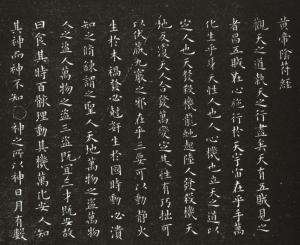 黃帝陰符經
觀天之道執天之行盡矣天有五賊見之
者昌五賊在心施行於天宇宙在乎手萬
化生乎身天性人也人心機也立天之道以
定人也天發殺機龍蛇起陸人發殺機天
地反覆天人合發萬變定基性有巧拙可
以伏藏九竅之邪在乎三要可以動靜火
生於木禍發必剋姧生於國時動必潰
知之修鍊謂之聖人天地萬物之盜萬物
人之盜人萬物之盜三盜既宜三才既安故
曰食其時百骸理動其機萬化安人知
其神而神不知神之所以神日月有數